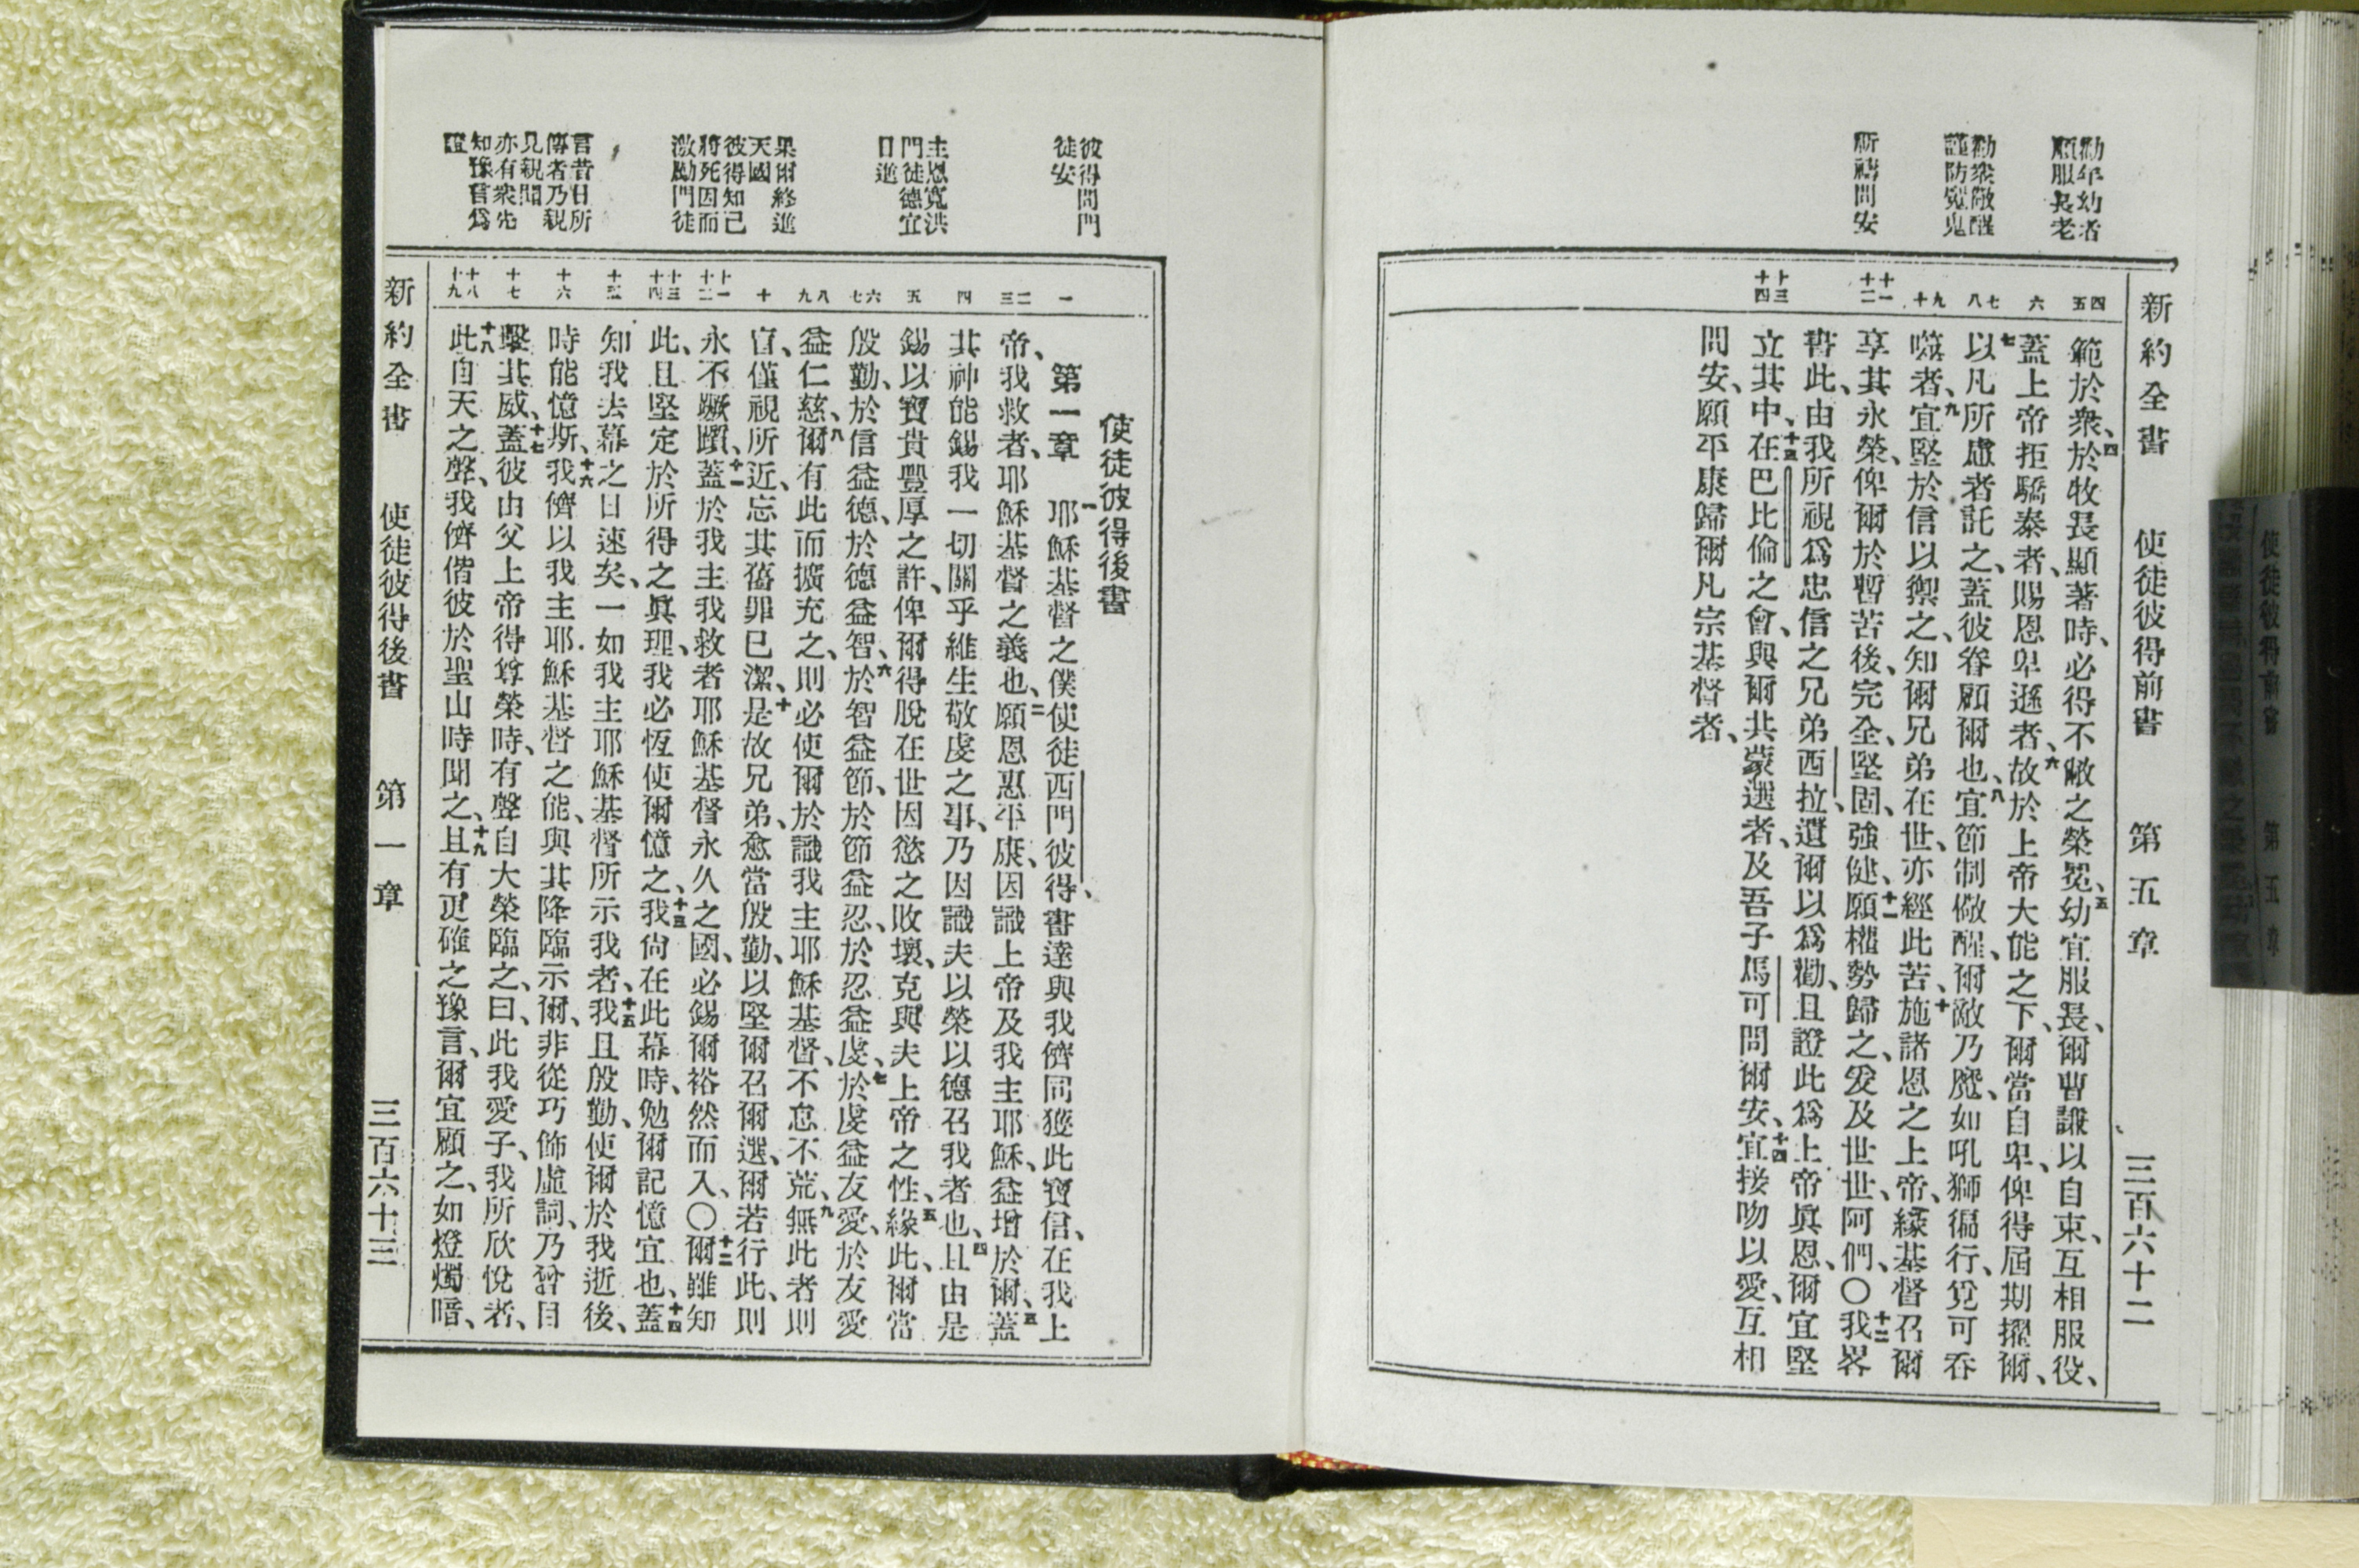 新約全書 使徒彼得前書 第五章 三百六十二
勸年幼者
順服長老
勸衆儆醒
謹防冤鬼
祈禱問安
四
五
六
七
八
九
十
十一
十二
十三
十四
範於衆、四於牧長顯著時、必得不敝之榮冕、五幼宜服長、爾曹謙以自束、互相服役、
蓋上帝拒驕泰者、賜恩卑遜者、六故於上帝大能之下、爾當自卑、俾得屆期擢爾、
七以凡所慮者託之、蓋彼眷顧爾也、八宜節制儆醒、爾敵乃魔、如吼獅徧行、覓可吞
噬者、九宜堅於信以禦之、知爾兄弟在世、亦經此苦、十施諸恩之上帝、緣基督召爾
享其永榮、俾爾於暫苦後、完全、堅固、強健、十一願權勢歸之、爰及世世、阿們、〇十二我畧
書此、由我所視爲忠信之兄弟西拉、遺爾以爲勸、且證此爲上帝眞恩、爾宜堅
立其中、十三在巴比倫之會、與爾共蒙選者、及吾子馬可問爾安、十四宜接吻以愛、互相
問安、願平康歸爾凡宗基督者、
彼得問門
徒安
主恩寬洪
門徒德宜
日進
果爾終進
天國
彼得知己
將死因而
激勵門徒
言昔日所
傳者乃親
見親聞
亦有衆先
知豫言爲
證
一
二
三
四
五
六
七
八
九
十
十一
十二
十三
十四
十五
十六
十七
十八
十九
使徒彼得後書
第一章 一耶穌基督之僕使徒西門彼得、書達與我儕同獲此寶信、在我上
帝、我救者、耶穌基督之義也、二願恩惠平康、因識上帝及我主耶穌、益增於爾、三蓋
其神能錫我一切關乎維生敬虔之事、乃因識夫以榮以德召我者也、四且由是
錫以寶貴豐厚之許、俾爾得脫在世因慾之敗壞、克與夫上帝之性、五緣此、爾當
殷勤、於信益德、於德益智、六於智益節、於節益忍、於忍益虔、七於虔益友愛、於友愛
益仁慈、八爾有此而擴充之、則必使爾於識我主耶穌基督、不怠不荒、九無此者則
盲、僅視所近、忘其舊罪已潔、十是故兄弟、愈當殷勤、以堅爾召爾選、爾若行此、則
永不蹶躓、十一蓋於我主我救者耶穌基督永久之國、必錫爾裕然而入、〇十二爾雖知
此、且堅定於所得之眞理、我必恆使爾憶之、十三我尙在此幕時、勉爾記憶宜也、十四蓋
知我去幕之日速矣、一如我主耶穌基督所示我者、十五我且殷勤、使爾於我逝後、
時能憶斯、十六我儕以我主耶穌基督之能、與其降臨示爾、非從巧飾虛詞、乃曾目
擊其威、十七蓋彼由父上帝得尊榮時、有聲自大榮臨之、曰、此我愛子、我所欣悅者、
十八此自天之聲、我儕偕彼於聖山時聞之、十九且有更確之豫言、爾宜顧之、如燈燭暗、
新約全書 使徒彼得後書 第一章 三百六十三
使徒彼得前書 第五章